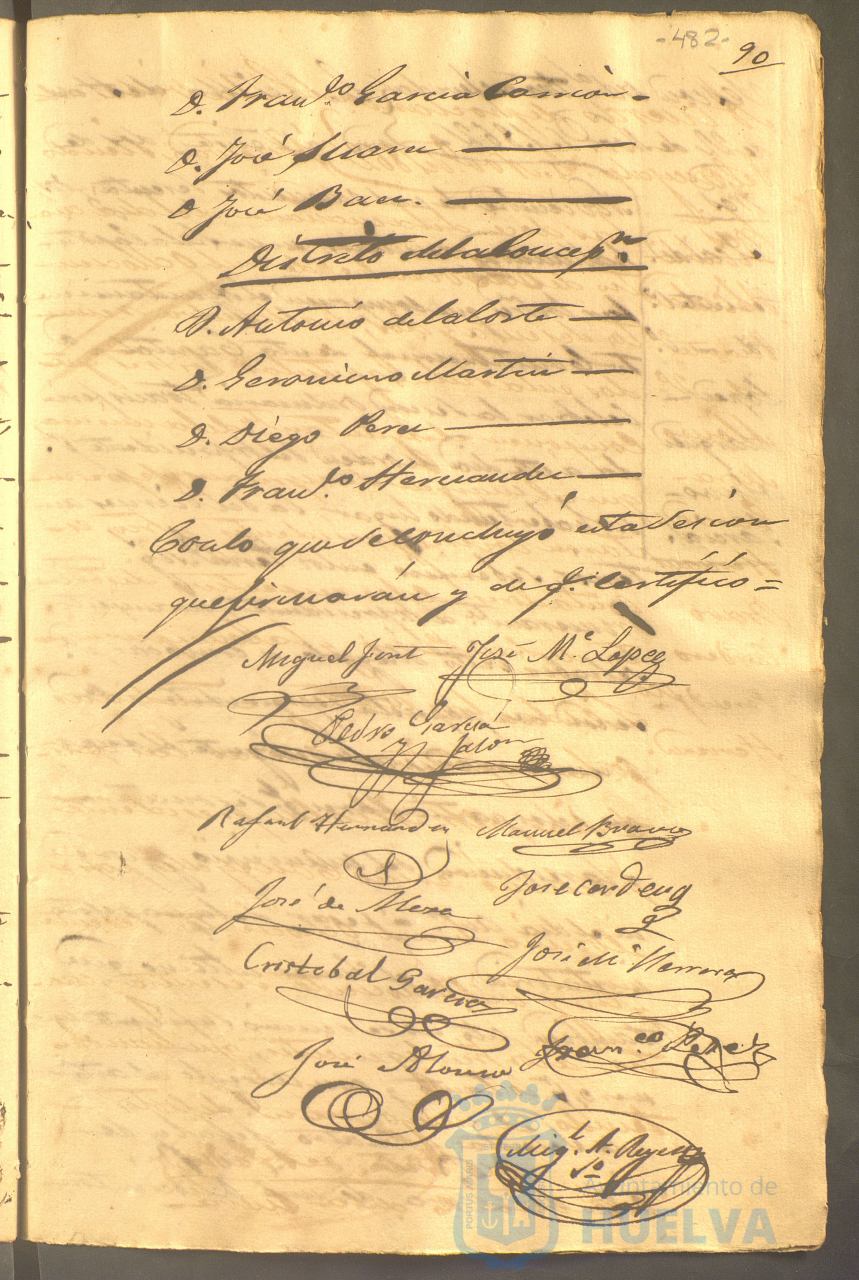 -482-
90
D. Fran.co Garcia Carrion
D. José Suarez
D José Baez.
Distrito de la Concep.n
D. Antonio de la Corte
D. Geronimo Martin
D. Diego Perez
D. Fran.co Hernandez
Con lo que se concluyó esta sesion
que firmarán y de q.e certifico =
Miguel Font José M.a Lopez
Pedro Garcia
y Jalon
Rafael Hernandez Manuel Bravo
José de Mora
Cristobal Garcia José M.a Herrera
José Alonso Fran.co Perez
Mig.l A. Reyes
S.o
PORTUS MARIS
Ayuntamiento de
HUELVA